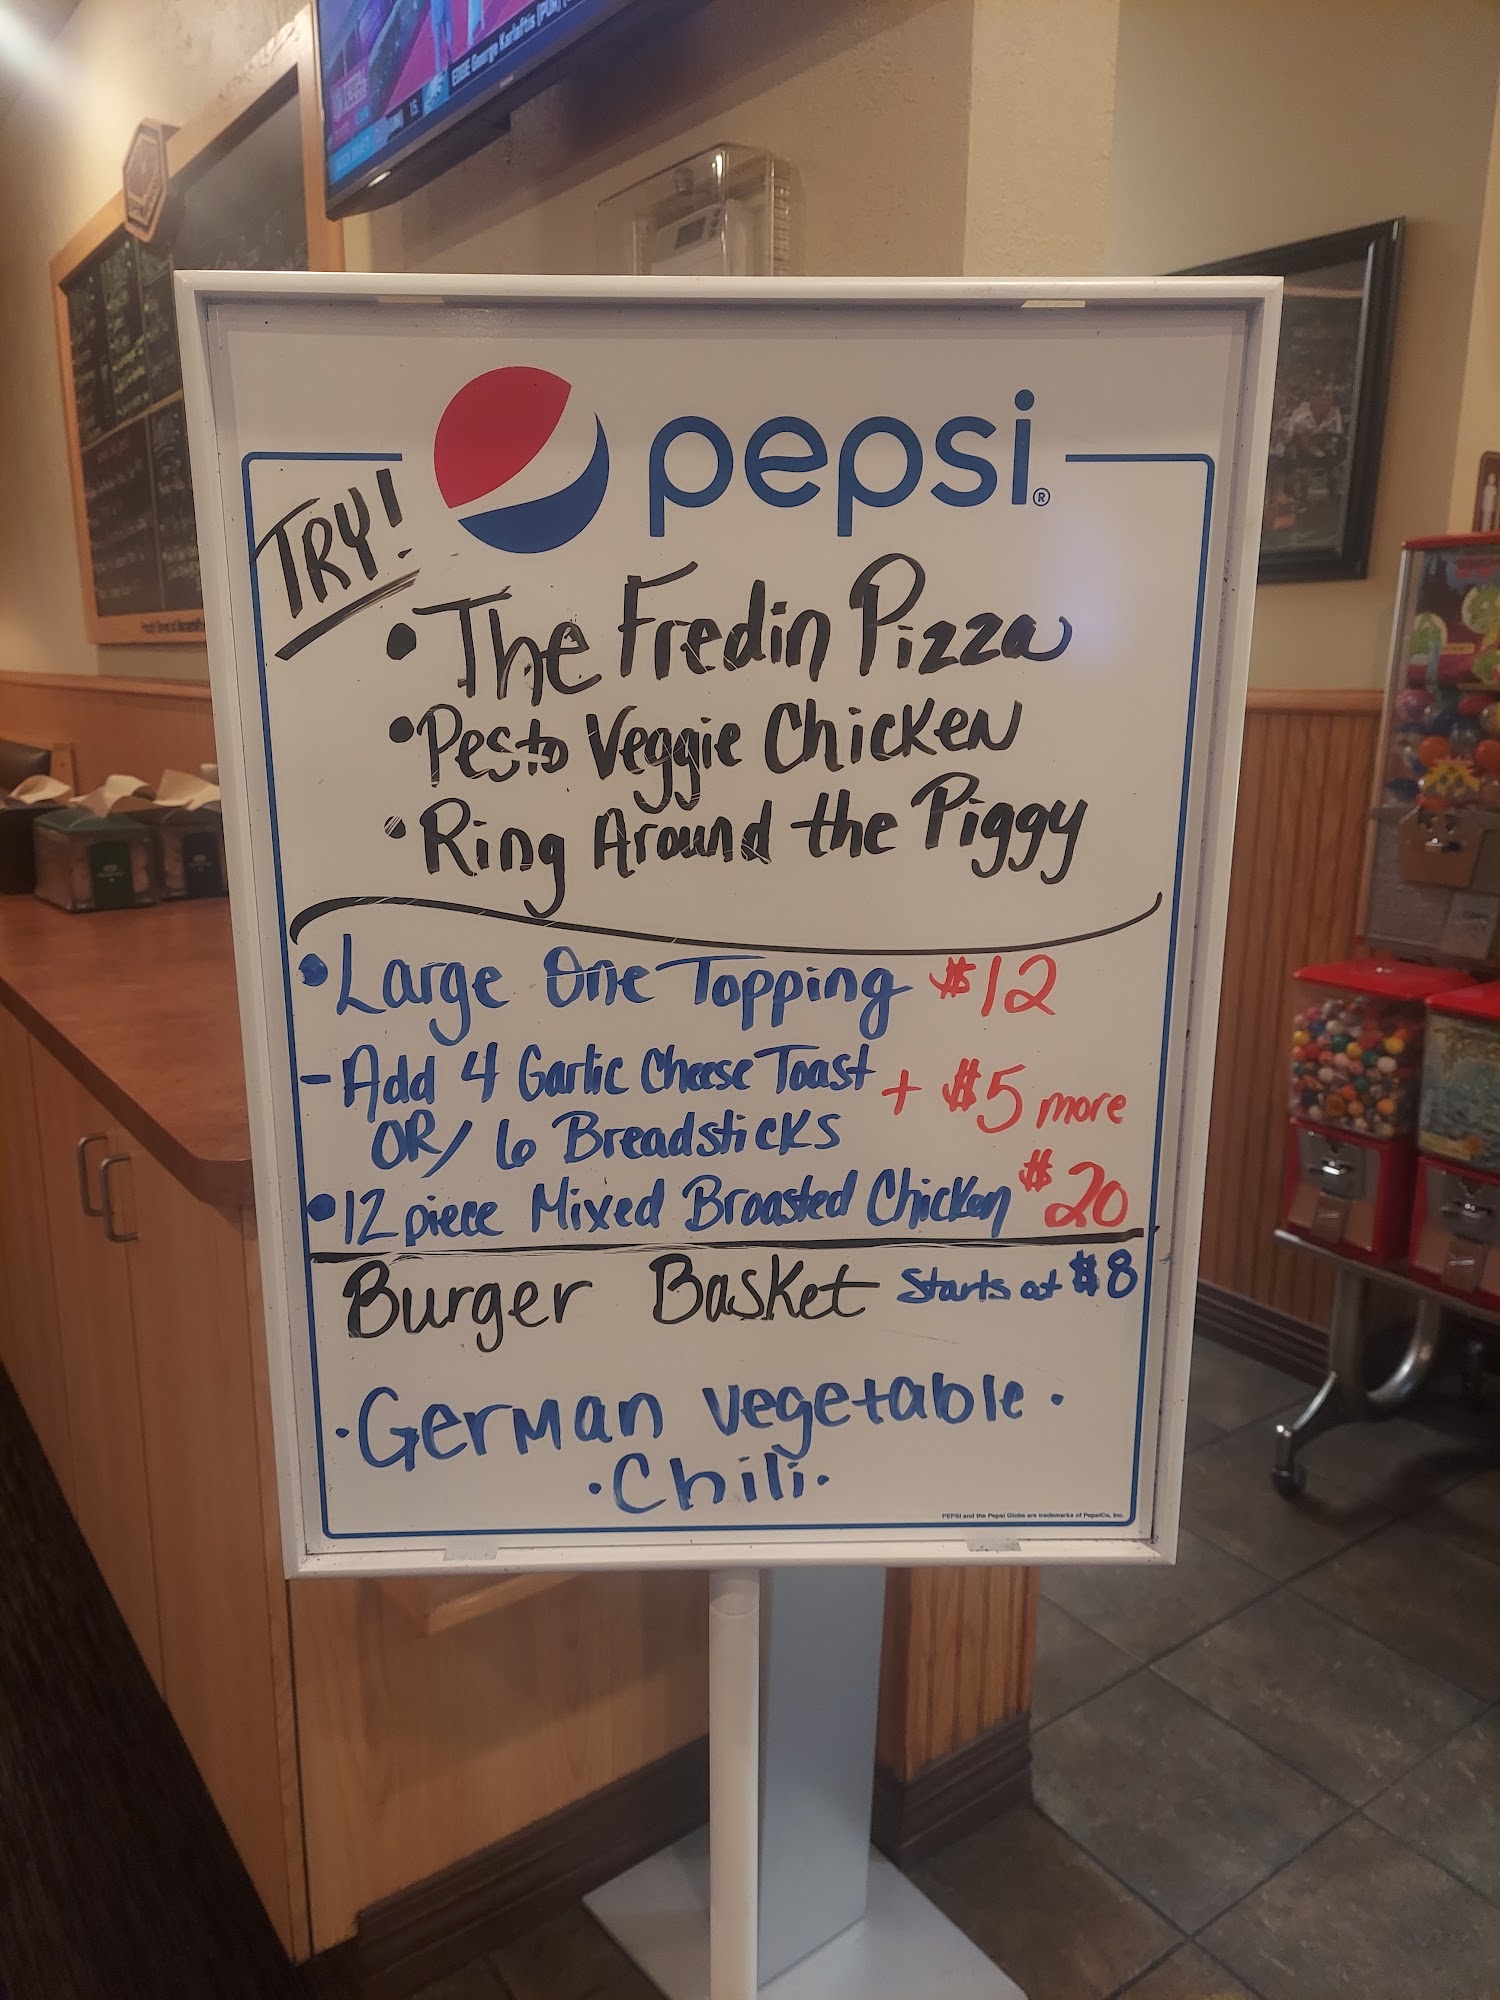 EDGE George Karlaftis (PUR)
pepsi®
TRY!
• The Fredin Pizza
• Pesto Veggie Chicken
• Ring Around the Piggy
• Large One Topping $12
- Add 4 Garlic Cheese Toast + $5 more
OR/ 6 Breadsticks
• 12 piece Mixed Broasted Chicken $20
Burger Basket Starts at $8
· German vegetable ·
· Chili ·
PEPSI and the Pepsi Globe are trademarks of PepsiCo, Inc.